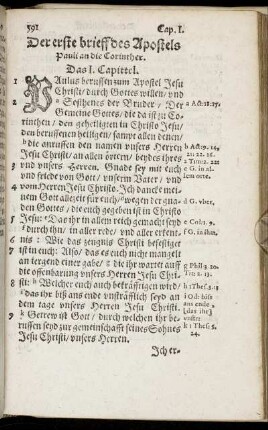 591 Cap. I.
Der erste brieff des Apostels
Pauli an die Corinther.
Das I. Capittel.
1 PAulus beruffen zum Apostel Jesu
Christi/ durch Gottes willen/ vnd
2 Sosthenes der Bruder/ Der
Gemeine Gottes/ die da ist zu Co-
rinthen/ den geheiligten in Christo Jesu/
den beruffenen heiligen/ sampt allen denen/
die anruffen den namen vnsers Herren
Jesu Christi/ an allen örtern/ beydes ihres
3 vnd vnsers Herren. Gnade sey mit euch
vnd friede von Gott/ vnserm Vater/ vnd
4 vom Herren Jesu Christo. Ich dancke mei-
nem Gott allezeit für euch/ wegen der gna-
den Gottes/ die euch gegeben ist in Christo
5 Jesu: Das ihr in allem reich gemacht seyd
durch ihn/ in aller rede/ vnd aller erkente-
6 nis: Wie das zeugnis Christi befestiget
7 ist in euch: Also/ das es euch nicht mangelt
an irgend einer gabe/ die ihr wartet auff
die offenbarung vnsers Herren Jesu Chri-
8 sti: Welcher euch auch bekräfftigen wird/
das ihr biß ans ende vnsträfflich seyd an
dem tage vnsers Herren Jesu Christi.
9 Getrew ist Gott/ durch welchen ihr be-
ruffen seyd zur gemeinschafft seines Sohnes
Jesu Christi/ vnsers Herren.
Ich er-
a Act. 18.17.
b Act. 9. 14,
21. 22. 16.
2 Tim. 2. 22
c G. in al-
lem orte.
d G. vber.
e Col. 1. 9.
f O. in ihm.
g Phil. 3. 20.
Tit. 2. 13.
h 1 Thess. 3. 13
i O.
ans ende
[das ihr]
k 1 Thess. 5.
24.